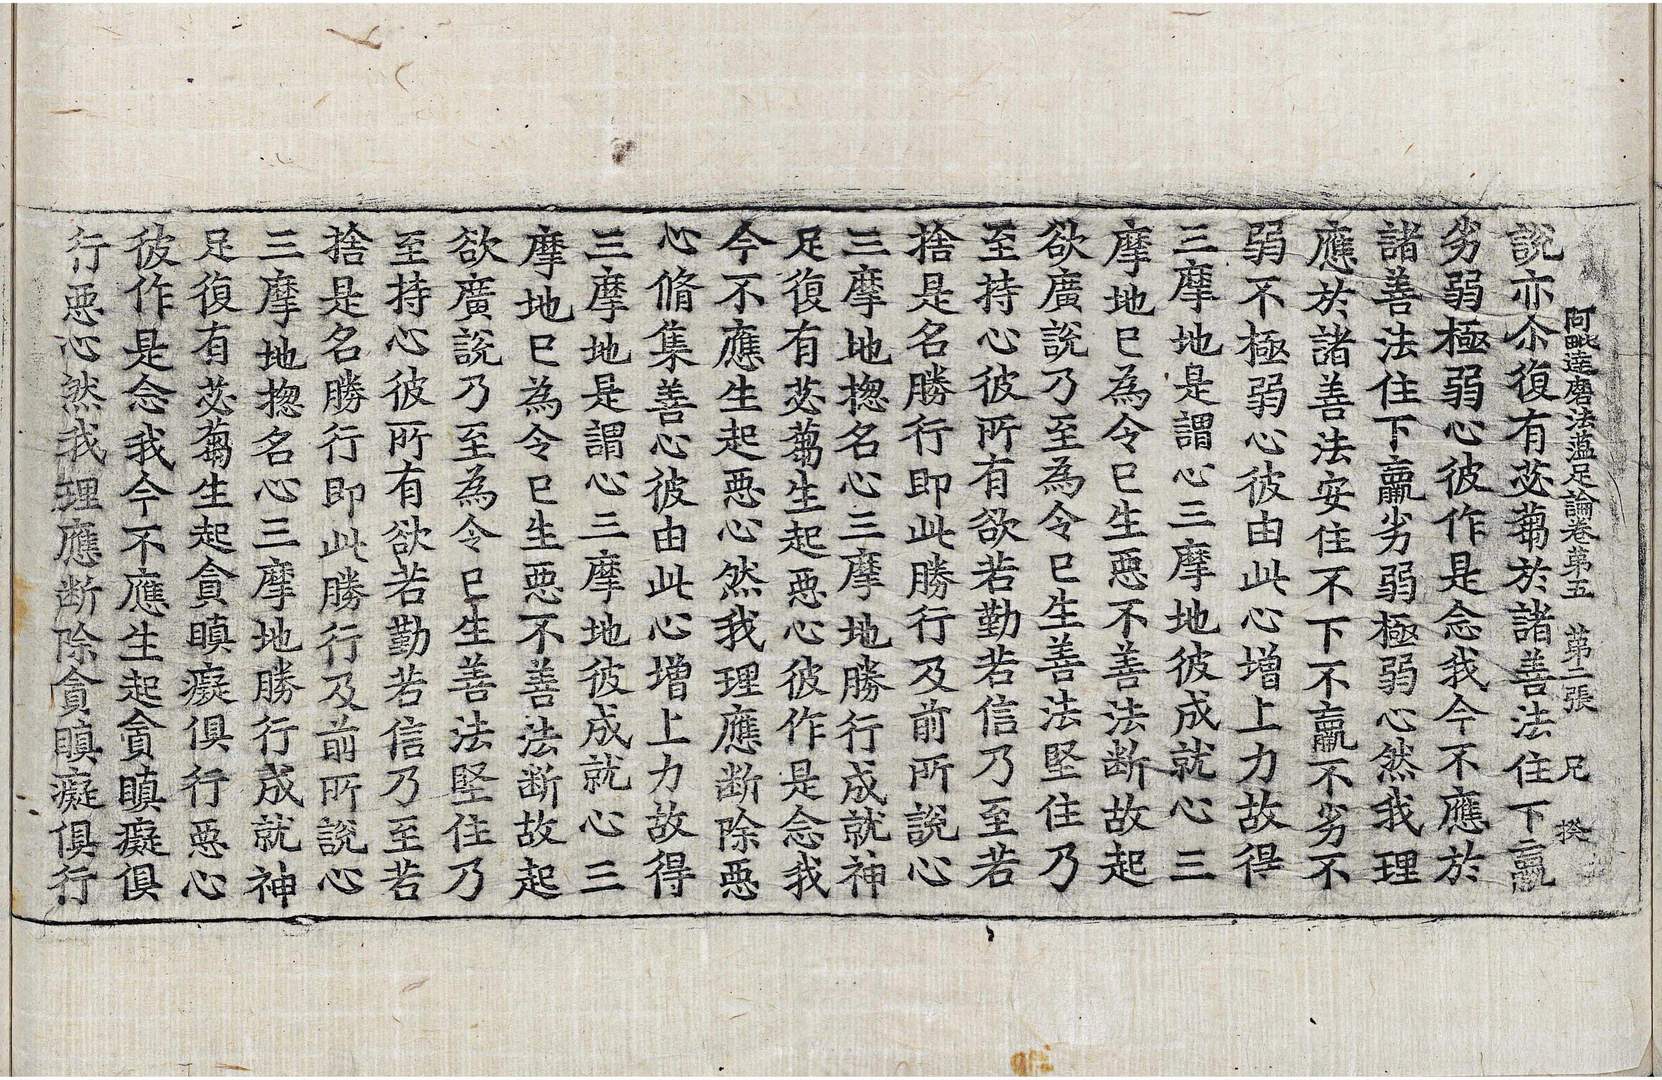 阿毗達磨法蘊足論卷第五 第二張 兄 揆
說亦尒復有苾蒭於諸善法住下羸
劣弱極弱心彼作是念我今不應於
諸善法住下羸劣弱極弱心然我理
應於諸善法安住不下不羸不劣不
弱不極弱心彼由此心增上力故得
三摩地是謂心三摩地彼成就心三
摩地已為令已生惡不善法断故起
欲廣說乃至為令已生善法堅住乃
至持心彼所有欲若勤若信乃至若
捨是名勝行即此勝行及前所說心
三摩地揔名心三摩地勝行成就神
足復有苾蒭生起惡心彼作是念我
今不應生起惡心然我理應断除惡
心脩集善心彼由此心增上力故得
三摩地是謂心三摩地彼成就心三
摩地已為令已生惡不善法断故起
欲廣說乃至為令已生善法堅住乃
至持心彼所有欲若勤若信乃至若
捨是名勝行即此勝行及前所說心
三摩地揔名心三摩地勝行成就神
足復有苾蒭生起貪瞋癡俱行惡心
彼作是念我今不應生起貪瞋癡俱
行惡心然我理應断除貪瞋癡俱行